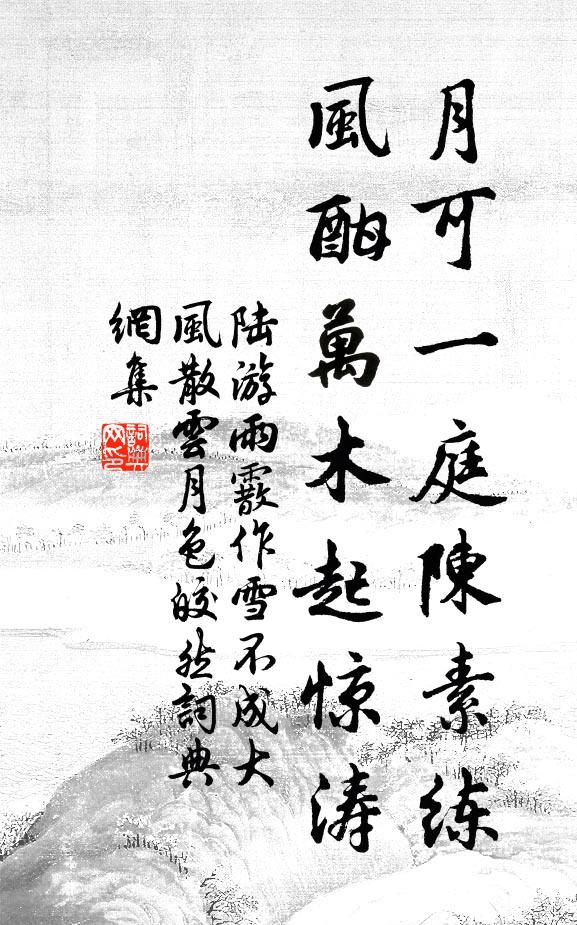 月可一庭陳素練
風酣萬木起惊涛
陆游雨霰作雪不成大
風散雲月色皎然詞典
網集